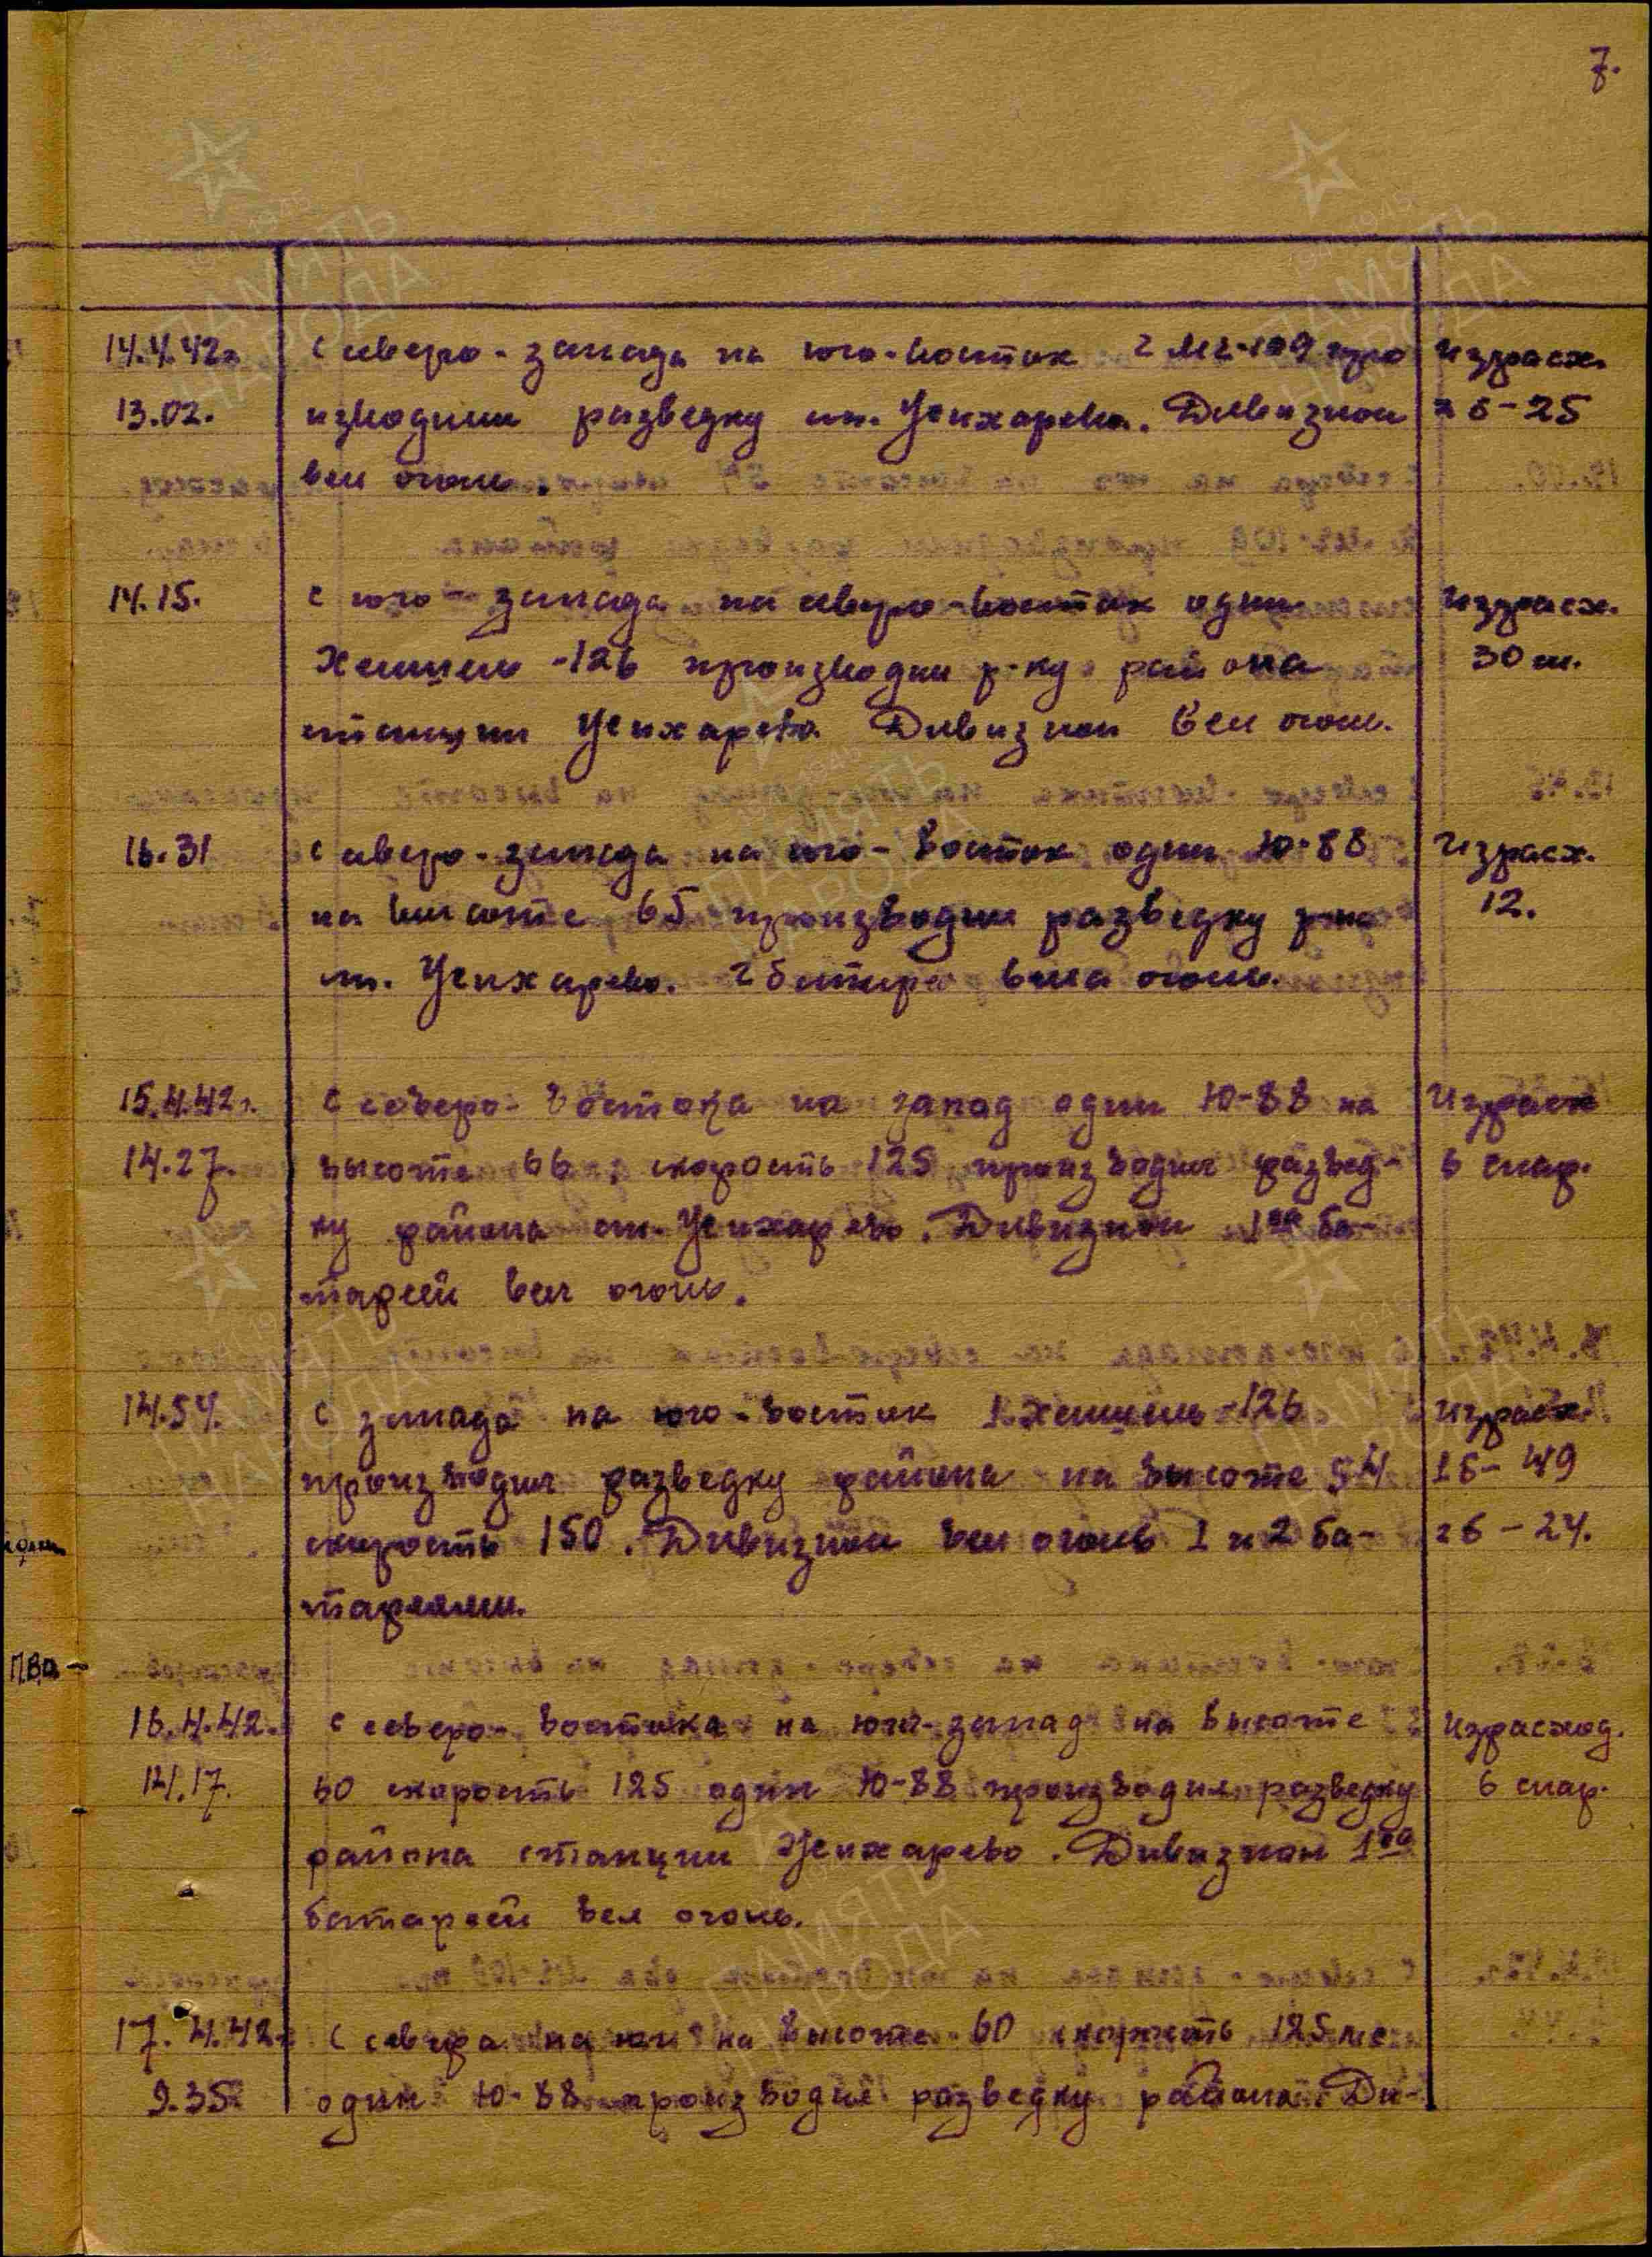 7.
14.4.42г. с северо-запада на юго-восток 2 Ме-109 про израсх.
13.02. изводили разведку ст. Уенхарево. Дивизион 2б-25
вел огонь.
14.15. с юго-запада на северо-восток один Израсх.
Хеншель-126 производил р-ку района 30 сн.
станции Уенхарево Дивизион вел огонь.
16.31 с северо-запада на юго-восток один Ю-88 Израсх.
на высоте 65 производил разведку р-на 12.
ст. Уенхарево. 2 батарея вела огонь.
15.4.42г. с северо-востока на запад один Ю-88 на Израсх
14.27. высоте 66, скорость 125 производил развед- 6 снар.
ку района ст. Уенхарево. Дивизион 1ой ба-
тареей вел огонь.
14.54. с запада на юго-восток 1 Хеншель-126 Израсх.
производил разведку района на высоте 54 1б-49
скорость 150. Дивизион вел огонь 1 и 2 ба- 2б-24.
тареями.
ПВО-
16.4.42. с северо-востока на юго-запад на высоте Израсход.
14.17. 60 скорость 125 один Ю-88 производил разведку 6 снар.
района станции Уенхарево. Дивизион 1ой
батареей вел огонь.
17.4.42г. с севера на юг на высоте 60 скорость 125 м/с
9.35 один Ю-88 производил разведку района. Ди-
ПАМЯТЬ
НАРОДА